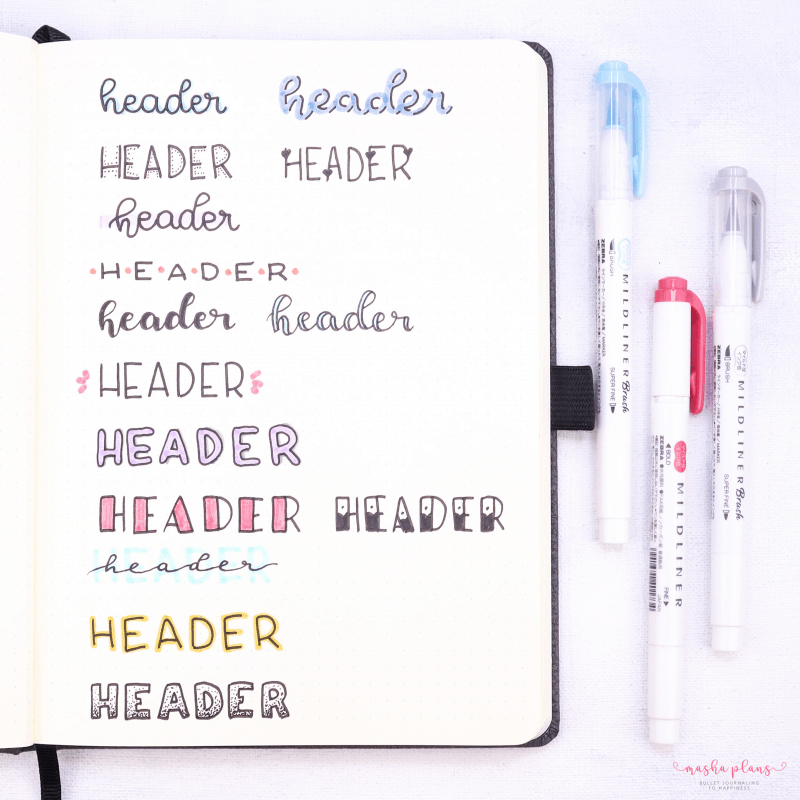 header header
HEADER HEADER
header
H•E•A•D•E•R
header header
HEADER
HEADER
HEADER HEADER
header
HEADER
HEADER
ZEBRA
BRUSH
MILDLINER Brush
SUPER FINE
BOLD
ZEBRA
MILDLINER
FINE
JAPAN
BRUSH
ZEBRA
MILDLINER Brush
SUPER FINE
masha plans
BULLET JOURNALING
TO HAPPINESS